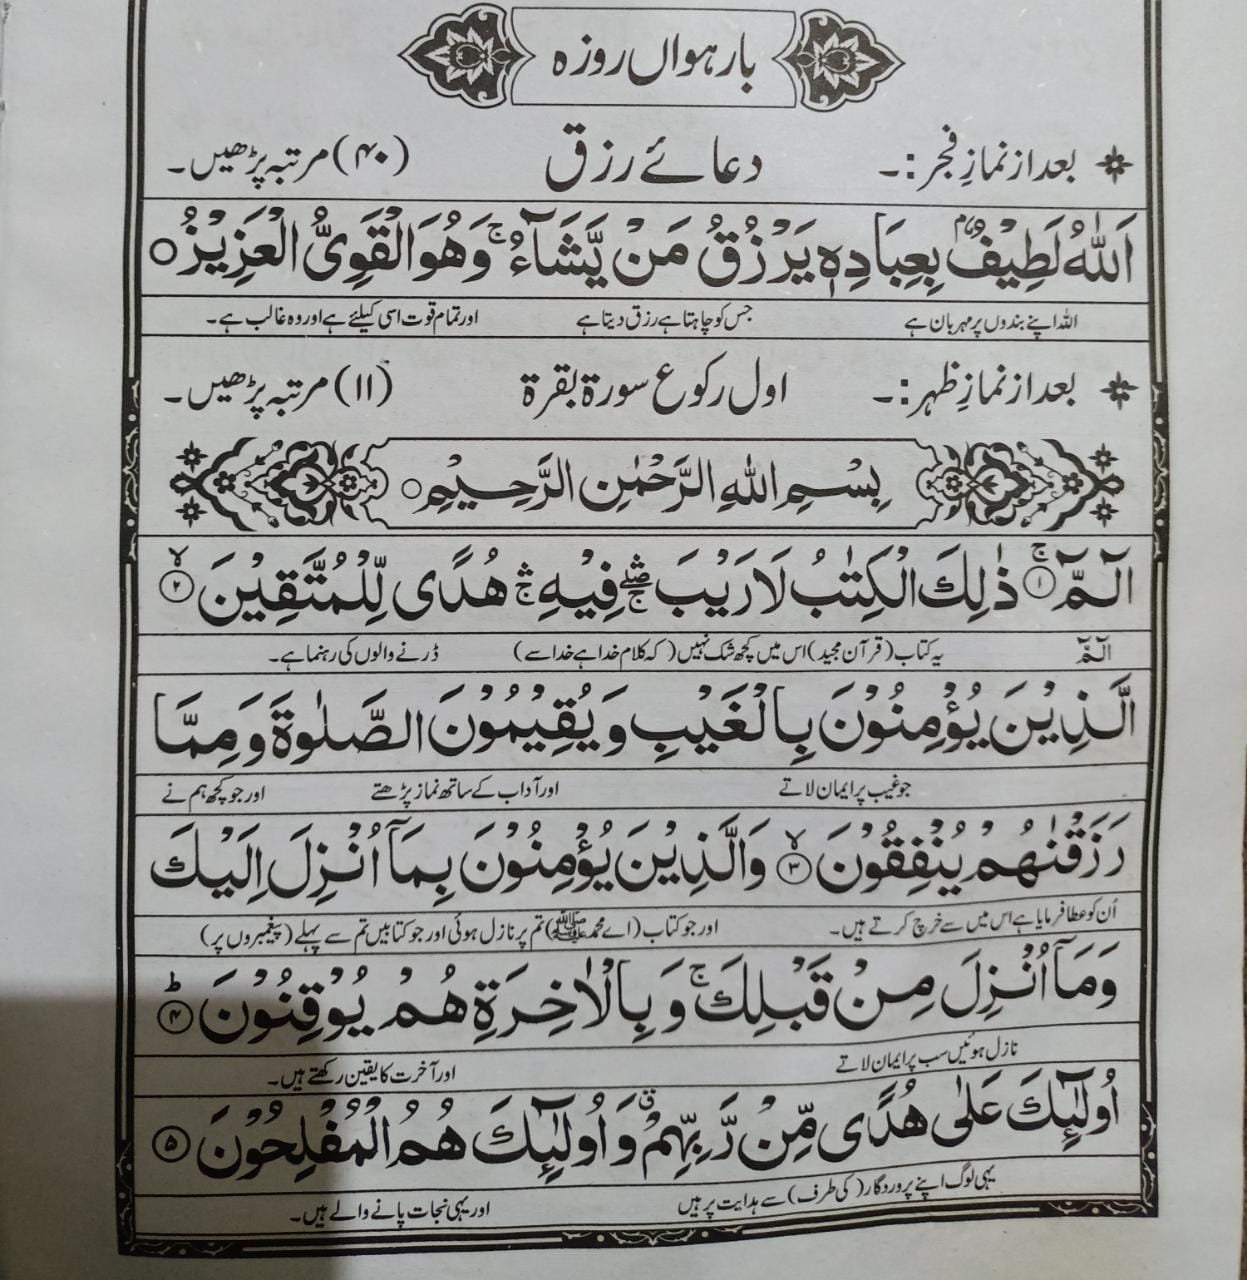 بارہواں روزہ
بعد از نمازِ فجر:۔ دعائے رزق (۴۰) مرتبہ پڑھیں۔
اَللّٰهُ لَطِيْفٌۢ بِعِبَادِهٖ يَرْزُقُ مَنْ يَّشَآءُ ۚ وَهُوَ الْقَوِيُّ الْعَزِيْزُ ○
اللہ اپنے بندوں پر مہربان ہے جس کو چاہتا ہے رزق دیتا ہے اور تمام قوت اسی کیلئے ہے اور وہ غالب ہے۔
بعد از نمازِ ظہر:۔ اول رکوع سورۃ بقرۃ (۱۱) مرتبہ پڑھیں۔
بِسْمِ اللّٰهِ الرَّحْمٰنِ الرَّحِيْمِ ○
الٓمّٓ ۚ ﴿۱﴾ ذٰلِكَ الْكِتٰبُ لَا رَيْبَ ۛۖۚ فِيْهِ ۛۚ هُدًى لِّلْمُتَّقِيْنَ ۙ ﴿۲﴾
الٓمّٓ یہ کتاب (قرآن مجید) اس میں کچھ شک نہیں (کہ کلام خدا ہے خدا سے) ڈرنے والوں کی رہنما ہے۔
الَّذِيْنَ يُؤْمِنُوْنَ بِالْغَيْبِ وَيُقِيْمُوْنَ الصَّلٰوةَ وَمِمَّا
جو غیب پر ایمان لاتے اور آداب کے ساتھ نماز پڑھتے اور جو کچھ ہم نے
رَزَقْنٰهُمْ يُنْفِقُوْنَ ۙ ﴿۳﴾ وَالَّذِيْنَ يُؤْمِنُوْنَ بِمَآ اُنْزِلَ اِلَيْكَ
اُن کو عطا فرمایا ہے اس میں سے خرچ کرتے ہیں۔ اور جو کتاب (اے محمد ﷺ) تم پر نازل ہوئی اور جو کتابیں تم سے پہلے (پیغمبروں پر)
وَمَآ اُنْزِلَ مِنْ قَبْلِكَ ۚ وَبِالْاٰخِرَةِ هُمْ يُوْقِنُوْنَ ؕ ﴿۴﴾
نازل ہوئیں سب پر ایمان لاتے اور آخرت کا یقین رکھتے ہیں۔
اُولٰٓئِكَ عَلٰى هُدًى مِّنْ رَّبِّهِمْ ۗ وَاُولٰٓئِكَ هُمُ الْمُفْلِحُوْنَ ﴿۵﴾
یہی لوگ اپنے پروردگار (کی طرف) سے ہدایت پر ہیں اور یہی نجات پانے والے ہیں۔